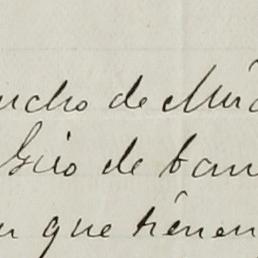 ucho de Mira
Giro de ban
n que tienen